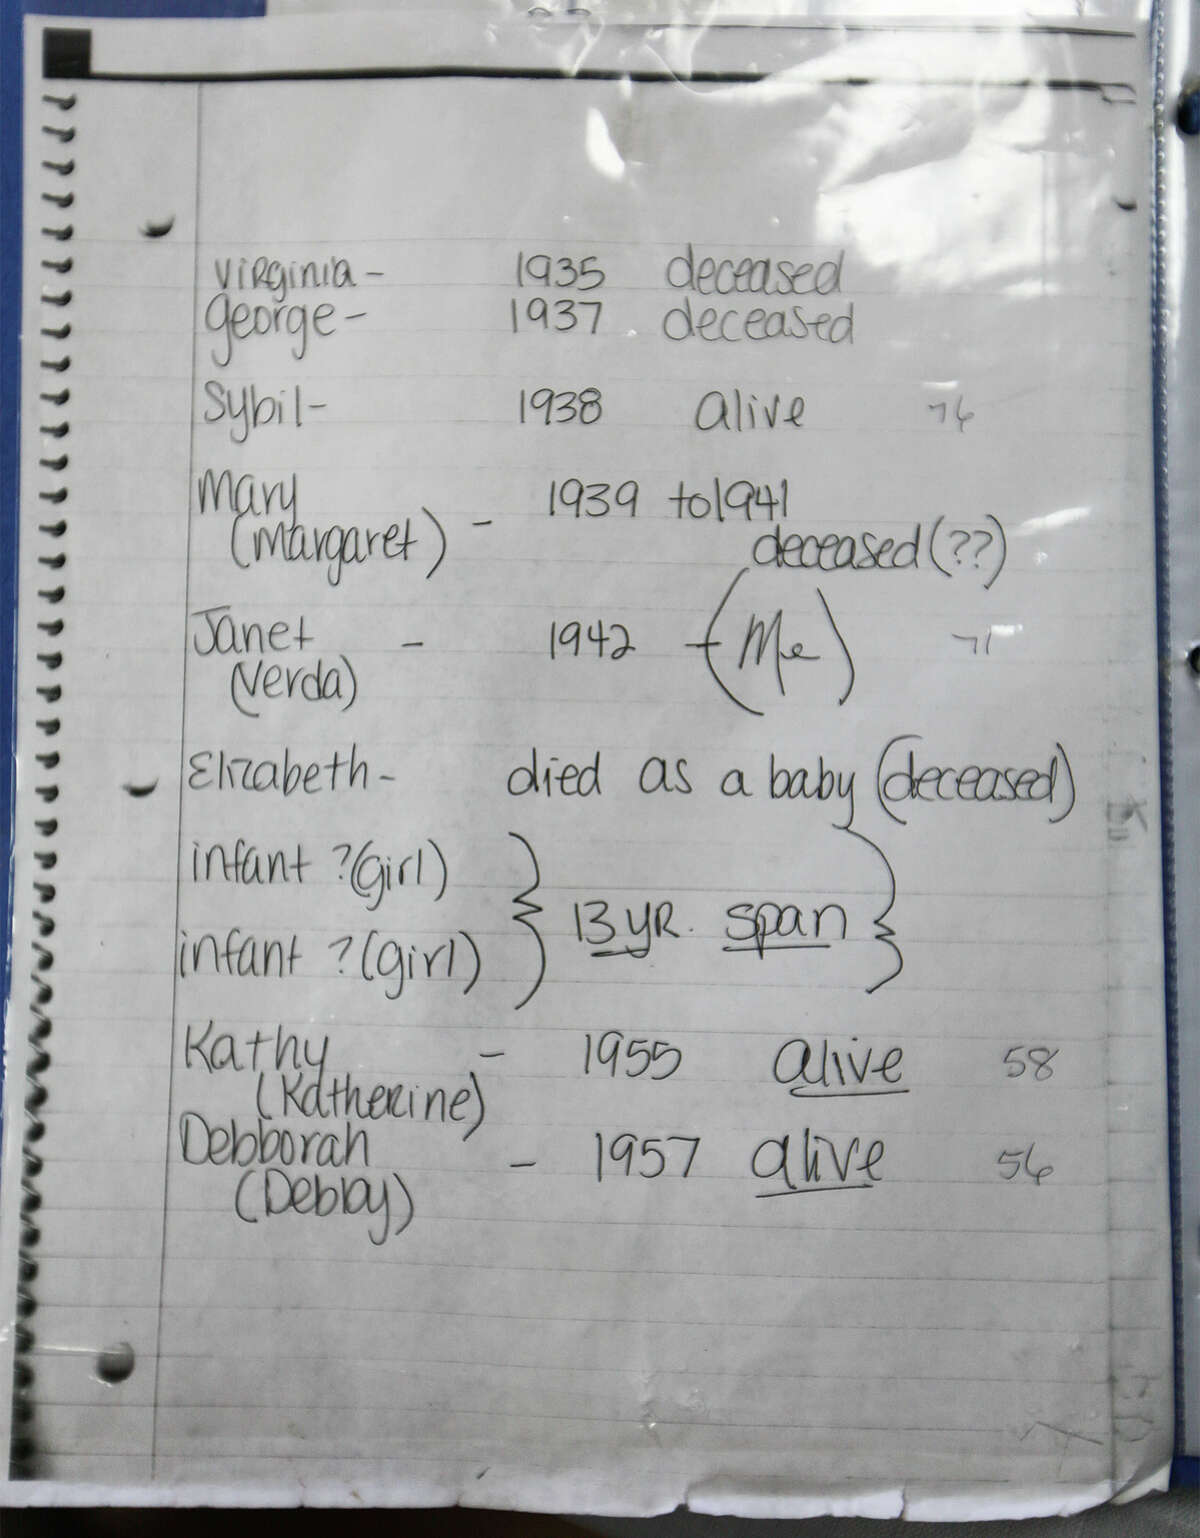 Virginia - 1935 deceased
George - 1937 deceased
Sybil - 1938 alive 76
Mary
(Margaret) - 1939 to 1941
deceased (??)
Janet - 1942 - (Me) 71
(Verda)
Elizabeth - died as a baby (deceased)
infant ? (girl)
13 yR. span
infant ? (girl)
Kathy - 1955 alive 58
(Katherine)
Debborah - 1957 alive 56
(Debby)